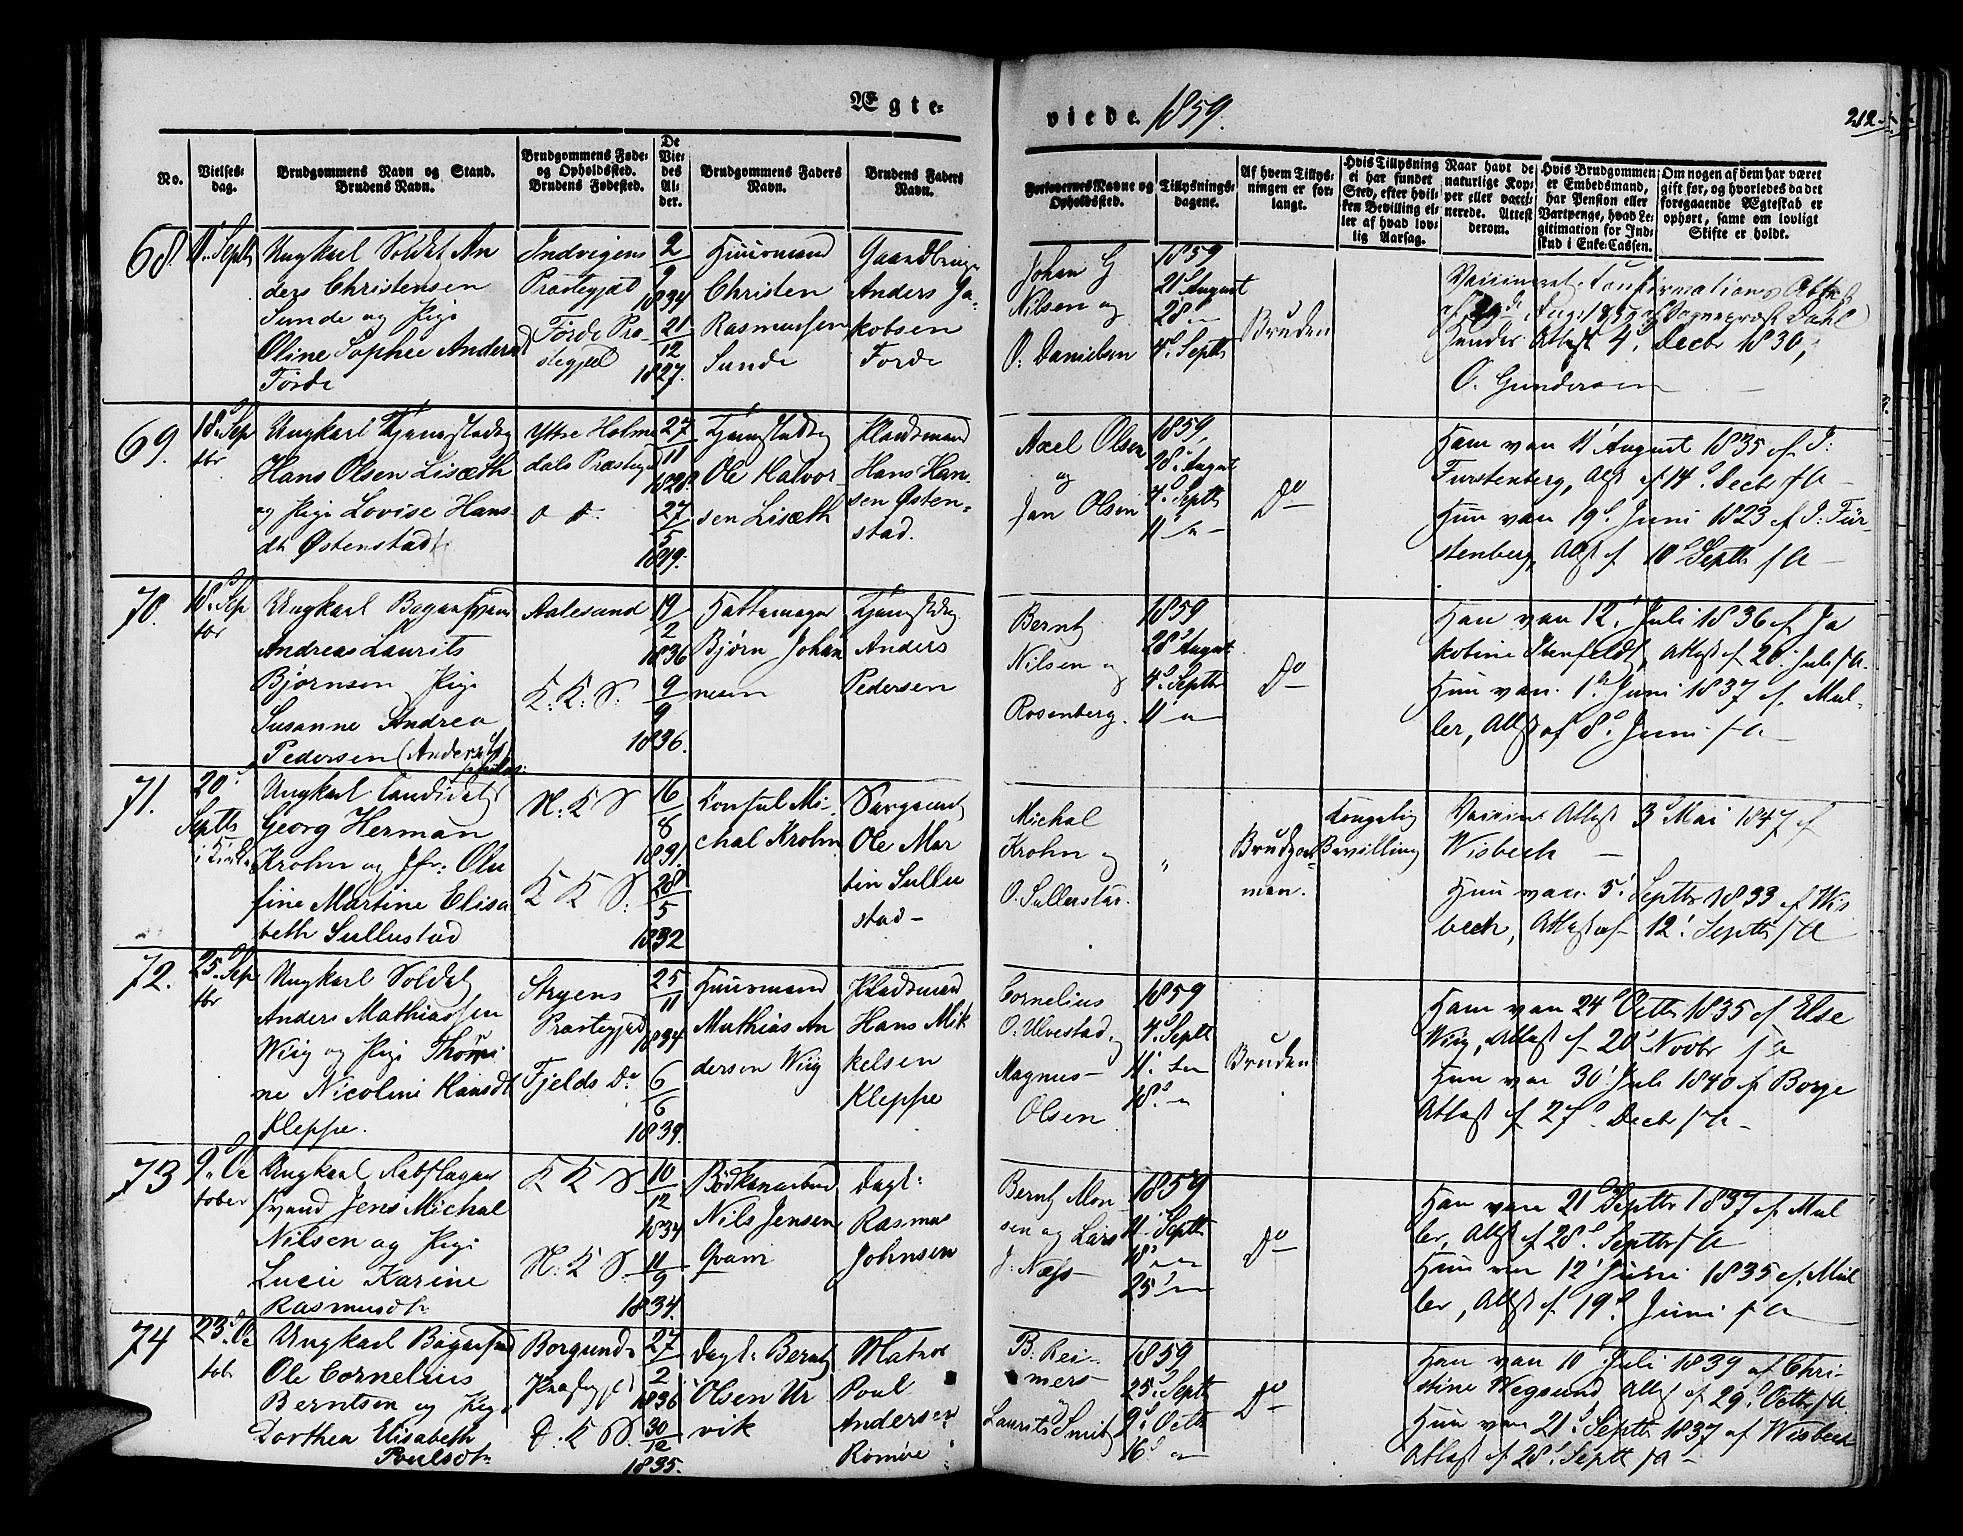 Ægte-
viede 1859.
212
No.
Vielses-
dag.
Brudgommens Navn og Stand.
Brudens Navn.
Brudgommens Føde-
og Opholdssted.
Brudens Fødested.
De
Vie-
des
Al-
der.
Brudgommens Faders
Navn.
Brudens Faders
Navn.
Forlovernes Navne og
Opholdssted.
Tillysnings-
dagene.
Af hvem Tillys-
ningen er for-
langt.
Hvis Tillysning
ei har fundet
Sted, efter hvil-
ken Bevilling el-
ler af hvad lov-
lig Aarsag.
Naar havt de
naturlige Kop-
per eller vacci-
nerede. Attest
derom.
Hvis Brudgommen
er Embedsmand,
har Pension eller
Vartpenge, hvad Le-
gitimation for Ind-
skud i Enke-Cassen.
Om nogen af dem har været
gift før, og hvorledes da det
foregaaende Ægteskab er
ophørt, samt om lovligt
Skifte er holdt.
68.
11. Septb
Ungkarl Soldat An
ders Christensen
Sunde og Pige
Oline Sophie Andersd
Førde
Indvigens
Præstegjæld
Førde Præ-
stegjæld
2
9
1834
21
12
1827.
Huusmand
Christen
Rasmussen
Sunde
Gaardbruger
Anders Ja-
kobsen
Førde
Johan G
Nilsen og
O. Danielsen
1859
21 August
28 "
4. Septb
Bruden
Vaccineret
Hendes Attest 4. Decbr 1830,
O. Gundersen
69.
18. Sep
tbr
Ungkarl
Hans Olsen Lisæth
og Pige Lovise Hans-
dt. Østenstad
Yttre Holme
dals Præsteg
27
11
1828.
27
5
1819.
Ole Halvor-
sen Lisæth
Hans Han-
sen Østen-
stad.
Axel Olsen
og
Jan Olsen
1859,
28. August
4. Septb
11 "
Do
Ham van 11 August 1835 af I.
Furstenberg, Atst af 14. Decbr s. A
Hun van 19. Juni 1823 af I. Für-
stenberg, Atst af 10 Septb s. A
70.
18. Sep
tbr
Ungkarl Bagersvend
Andreas Laurits
Bjørnsen Pige
Susanne Andrea
Pedersen
Aalesund
K. K. S.
19
2
1836
9
9
1836.
Hattemager
Bjørn Johan
nesen
Anders
Pedersen
Bernt
Nilsen og
Rosenberg.
1859
28 August
4. Septbr
11 "
Do
Ham van 12. Juli 1836 af Ja
kobine Stenfeldt, Attest af 20. Juli s. A.
Hun van. 1. Juni 1837 af. Mul-
ler, Attst af 8. Juni s. A
71.
20.
Septb
i Kirke
Ungkarl Candidat
Georg Herman
Krohn og Jfr: Olu
fine Martine Elisa
beth Sullustad
N. K. S
K K S.
16
8
1831.
28
5
1832
Konsul Mi-
chal Krohn
Sergeant
Ole Mar
tin Sullu
stad
Michal
Krohn og
O. Sullustad.
"
Brudgom-
men.
Kongelig
Bevilling
Vaccine Attest 3 Mai 1847 af
Wisbech
Hun van. 5. Septbr 1833 af Wis
bech, Attest af 12. Septb s. A
72.
25. Sep
tbr
Ungkarl Soldat
Anders Mathiassen
Wiig og Pige Thomi
ne Nicoline Hansdt
Kleppe.
Stryens
Præstegjæld
Fjelds Do
25
11
1834
6
6
1839.
Huusmand
Mathias An
dersen Wiig
Pladsmand
Hans Mik
kelsen
Kleppe
Cornelius
O. Ulvestad
Magnus
Olsen
1859
4. Septb
11. "
18. "
Bruden
Ham van 24 Octbr 1835 af Else
Wiig, Attest af 20. Novbr s. A
Hun van 30. Juli 1840 af Borge
Attest af 27. Decbr s. A
73
9. Oc
tober
Ungkarl Rebslager
svend Jens Michal
Nilsen og Pige
Lucie Karine
Rasmusdt.
K K S
N. K S.
10
12
1834
11
9
1834.
Bødkerarbeid
Nils Jensen
Dagl:
Rasmus
Johnsen
Bernt Mon
sen og Lars
J. Næss
1859
11. Septb
18. "
25. "
Do
Ham van 21 Septbr 1837 af Mul
ler, Attst af 28. Septbr s. A
Hun van 12. Juni 1835 af. Mul
ler, Attst af 19. Juni s. A
74
23. Oc
tob
Ungkarl Bagersvend
Ole Cornelius
Berntsen og Pige
Dorthea Elisabeth
Poulsdt.
Borgunds
Præstegjd
D. K S.
27
2
1836
30
12
1835.
Dagl: Bernt
Olsen Ur
vik
Matros
Poul
Andersen
Romøe
B. Rei-
mers
Laurits Smit
1859
25. Septb
9. Octb
16. "
Do
Ham van 10 Juli 1839 af Chri-
stine Wegsund, Attest af 29. Octbr s. A
Hun van 21. Septbr 1837 af Wisbech
Attest af 28. Septb s. A